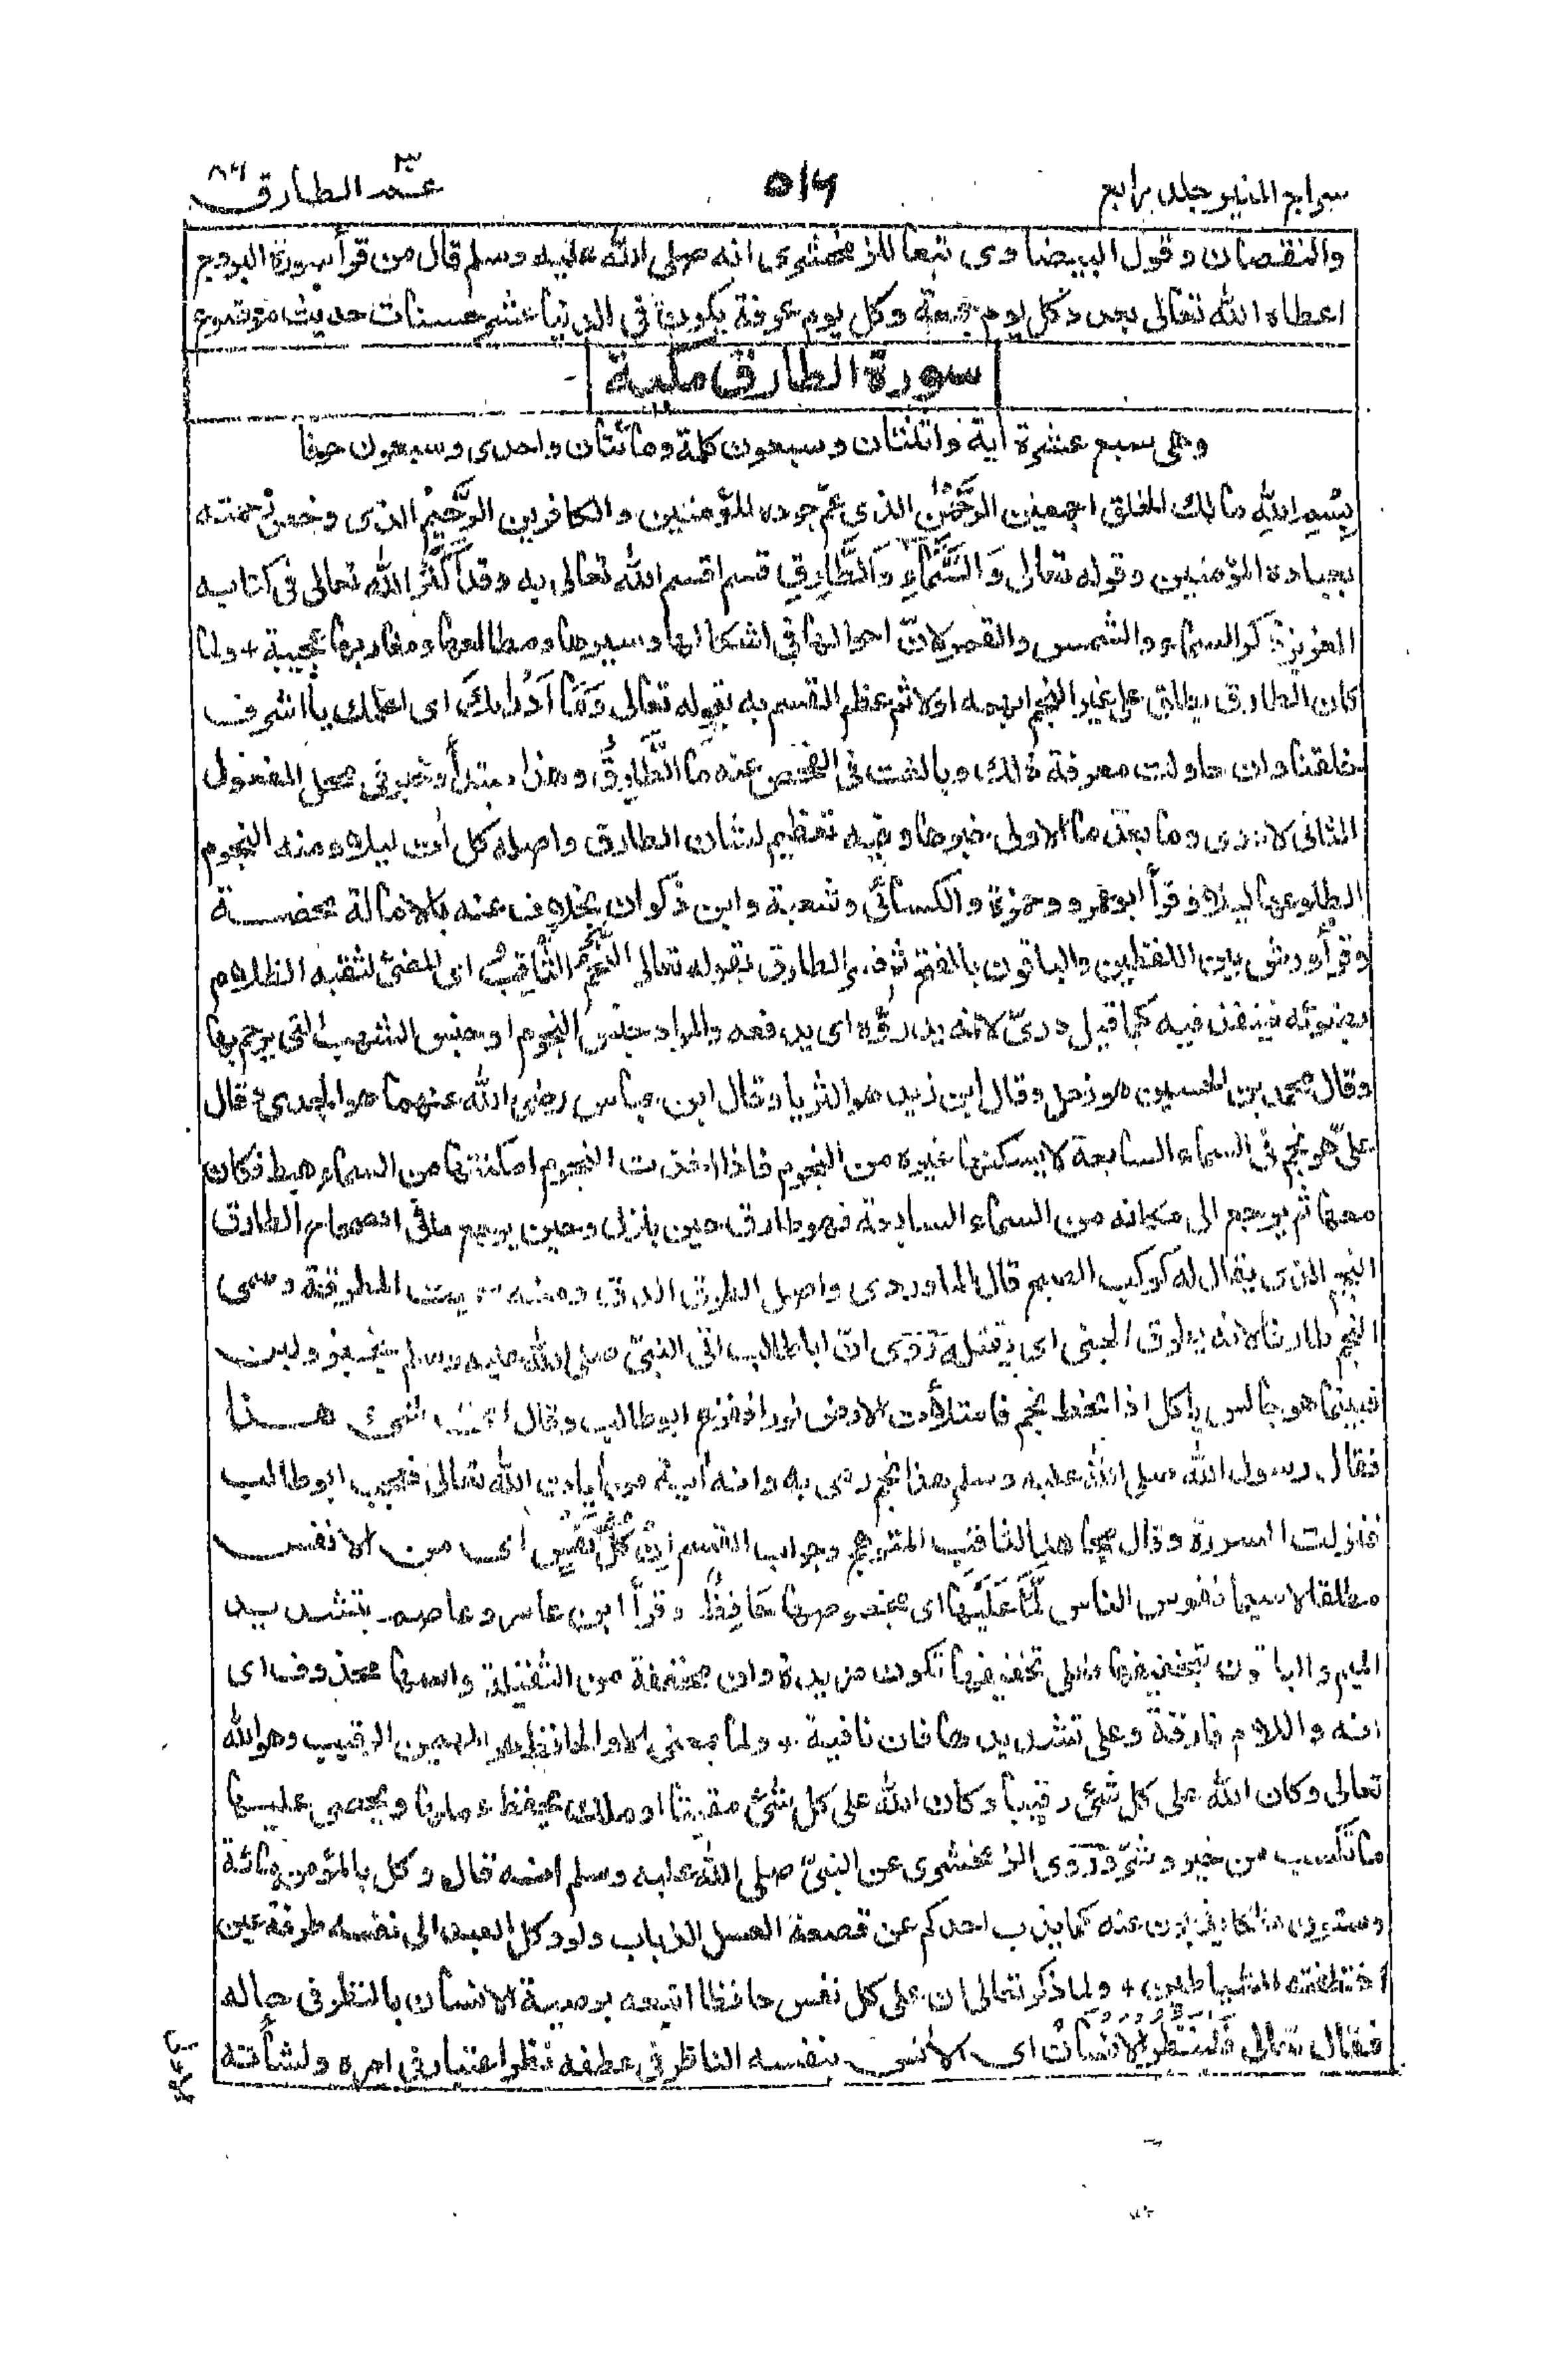 سراج المنير جلد رابع ٥١٦ عمّ ٣ الطارق ٨٦
والنقصان وقول البيضاوى تبعا للزمخشرى انه صلى الله عليه وسلم قال من قرأ سورة البروج
اعطاه الله تعالى بعدد كل يوم جمعة وكل يوم عرفة يكون فى الدنيا عشر حسنات حديث موضوع
سورة الطارق مكية
وهى سبع عشرة اية واثنتان وسبعون كلمة ومائتان واحدى وسبعون حرفا
بِسْمِ اللهِ مالك الخلق اجمعين الرَّحْمٰنِ الذى عمّ جوده المؤمنين والكافرين الرَّحِيْمِ الذى وخص رحمته
بعباده المؤمنين وقوله تعالى وَالسَّمَآءِ وَالطَّارِقِ قسم اقسم الله تعالى به وقد أكثر الله تعالى فى كتابه
العزيز ذكر السماء والشمس والقمر لانّ احوالها فى اشكالها وسيرها ومطالعها ومغاربها عجيبة + ولما
كان الطارق يطلق على غير النجم ابهمه اولا ثم عظم القسم به بقوله تعالى وَمَآ اَدْرٰىكَ اى اعلمك يا اشرف
خلقنا وان حاولت معرفة ذلك وبالغت فى الفحص عنه مَا الطَّارِقُ وهذا مبتدأ وخبر فى محل المفعول
الثانى لادرى وما بعد ما الاولى خبرها وفيه تعظيم لشان الطارق واصله كل اٰت ليلا ومنه النجوم
لطلوعها ليلا وقرأ ابو عمرو وحمزة والكسائى وشعبة وابن ذكوان بخلاف عنه بالامالة محضة
وقرأ ورش بين اللفظين والباقون بالفتح ثم فسر الطارق بقوله تعالى النَّجْمُ الثَّاقِبُ اى المضئ لثقبه الظلام
بضوئه فينفذ فيه كما قيل درىّ لانه يدرؤه اى يدفعه والمراد جنس النجوم او جنس الشهب التى يرجم بها
وقال محمد بن الحسين هو زحل وقال ابن زيد هو الثريا وقال ابن عباس رضى الله عنهما هو الجدى وقال
علىّ هو نجم فى السماء السابعة لا يسكنها غيره من النجوم فاذا اخذت النجوم امكنتها من السماء هبط فكان
معها ثم يرجع الى مكانه من السماء السابعة فهو طارق حين ينزل وحين يرجع وفى الصحاح الطارق
النجم الذى يقال له كوكب الصبح قال الماوردى واصل الطرق الدق ومنه سميت المطرقة وسمى
النجم طارقا لانه يطرق الجنى اى يقتله رَوَى انّ ابا طالب اتى النبىّ صلى الله عليه وسلم بخبز ولبن
فبينما هو جالس ياكل اذا انحط نجم فامتلأت الارض نورا ففزع ابو طالب وقال اىّ شىء هذا
فقال رسول الله صلى الله عليه وسلم هذا نجم رمى به وانه اٰية من اٰيات الله تعالى فعجب ابو طالب
فنزلت السورة وقال مجاهد الثاقب المتوهج وجواب القسم اِنْ كُلُّ نَفْسٍ اى من الانفس
مطلقا لا سيما نفوس الناس لَّمَّا عَلَيْهَا اى بخصوصها حَافِظٌ وقرأ ابن عامر وعاصم بتشديد
الميم والباقون بتخفيفها فعلى تخفيفها تكون مزيدة وان مخففة من الثقيلة واسمها محذوف اى
انه واللام فارقة وعلى تشديدها فان نافية ولما بمعنى الا والحافظ هو المهيمن الرقيب وهو الله
تعالى وكان الله على كل شئ رقيبا وكان الله على كل شئ مقيتا او ملك يحفظ عملها ويحصى عليها
ما تكسب من خير وشرّ ورَوَى الزمخشرى عن النبىّ صلى الله عليه وسلم انه قال وكل بالمؤمن مائة
وستون ملكا يذبون عنه كما يذب احدكم عن قصعة العسل الذباب ولو وكل العبد الى نفسه طرفة عين
اختطفته الشياطين + ولما ذكر تعالى ان على كل نفس حافظا اتبعه بوصية الانسان بالنظر فى حاله
فقال تعالى فَلْيَنْظُرِ الْاِنْسَانُ اى الانس بنفسه الناظر فى عطفه نظر اعتبار فى امره ونشأته